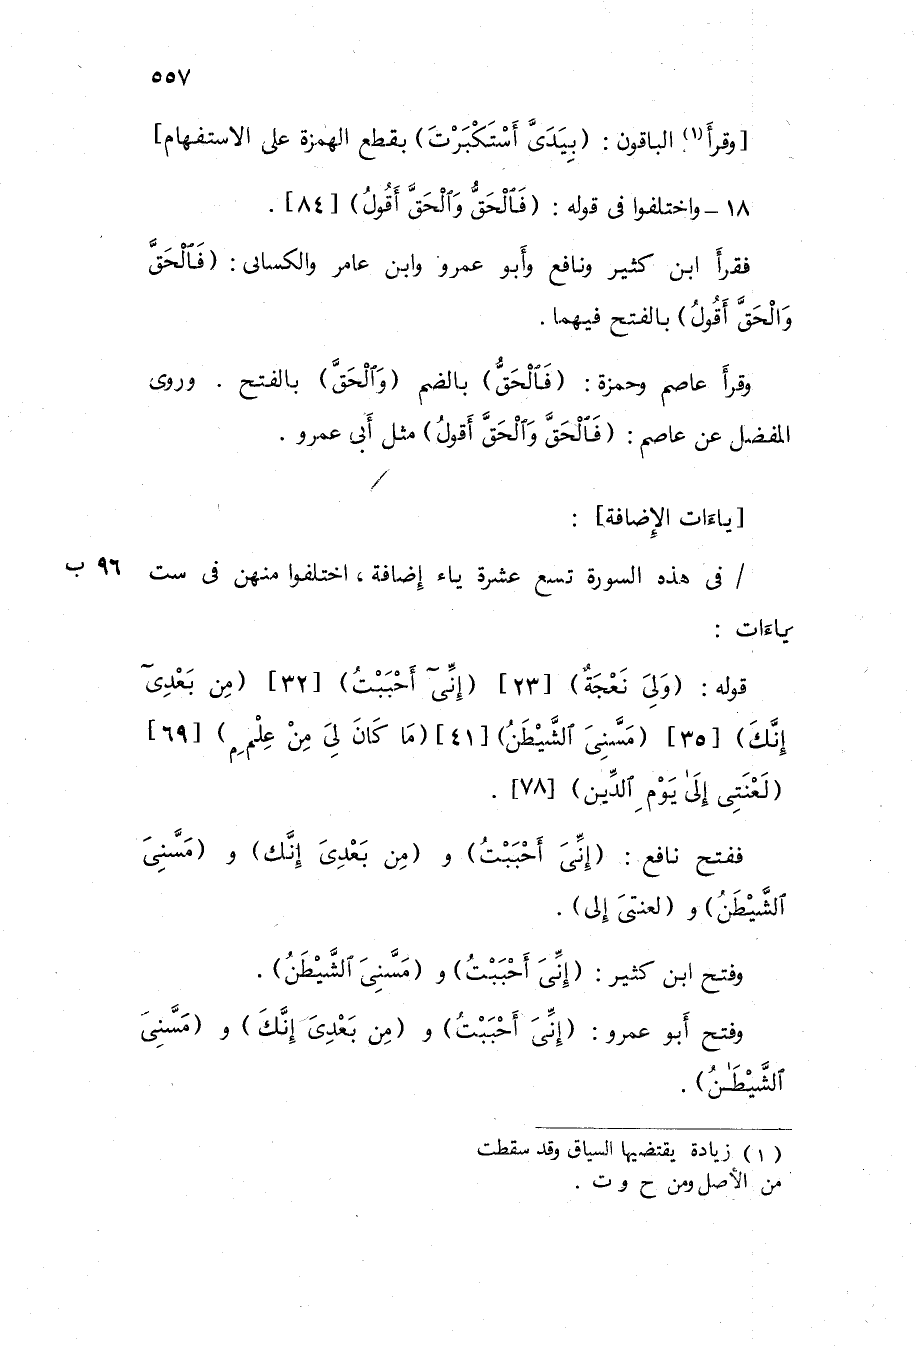 ٥٥٧
[وقرأ(١) الباقون : (بِيَدَىَّ أَسْتَكْبَرْتَ) بقطع الهمزة على الاستفهام]
١٨ ـ واختلفوا فى قوله : (فَٱلْحَقُّ وَٱلْحَقَّ أَقُولُ) [٨٤] .
فقرأ ابن كثير ونافع وأبو عمرو وابن عامر والكسائى : (فَٱلْحَقَّ
وَالْحَقَّ أَقُولُ) بالفتح فيهما .
وقرأ عاصم وحمزة : (فَٱلْحَقُّ) بالضم (وَٱلْحَقَّ) بالفتح . وروى
المفضل عن عاصم : (فَٱلْحَقَّ وَٱلْحَقَّ أَقولُ) مثل أَبى عمرو .
[ياءَات الإِضافة] :
/ فى هذه السورة تسع عشرة ياء إضافة ، اختلفوا منهن فى ست ٩٦ ب
ياءَات :
قوله : (وَلِىَ نَعْجَةٌ) [٢٣] (إِنِّىٓ أَحْبَبْتُ) [٣٢] (مِن بَعْدِىٓ
إِنَّكَ) [٣٥] (مَسَّنِىَ ٱلشَّيْطَنُ) [٤١] (مَا كَانَ لِىَ مِنْ عِلْمٍ) [٦٩]
(لَعْنَتِى إِلَىٰ يَوْمِ ٱلدِّينِ) [٧٨] .
ففتح نافع : (إِنِّىَ أَحْبَبْتُ) و (مِن بَعْدِىَ إِنَّك) و (مَسَّنِىَ
ٱلشَّيْطَنُ) و (لعنتىَ إِلى) .
وفتح ابن كثير : (إِنِّىَ أَحْبَبْتُ) و (مَسَّنِىَ ٱلشَّيْطَنُ) .
وفتح أَبو عمرو : (إِنِّىَ أَحْبَبْتُ) و (مِن بَعْدِىَ إِنَّكَ) و (مَسَّنِىَ
ٱلشَّيْطَٰنُ) .
(١) زيادة يقتضيها السياق وقد سقطت
من الأصل ومن ح و ت .